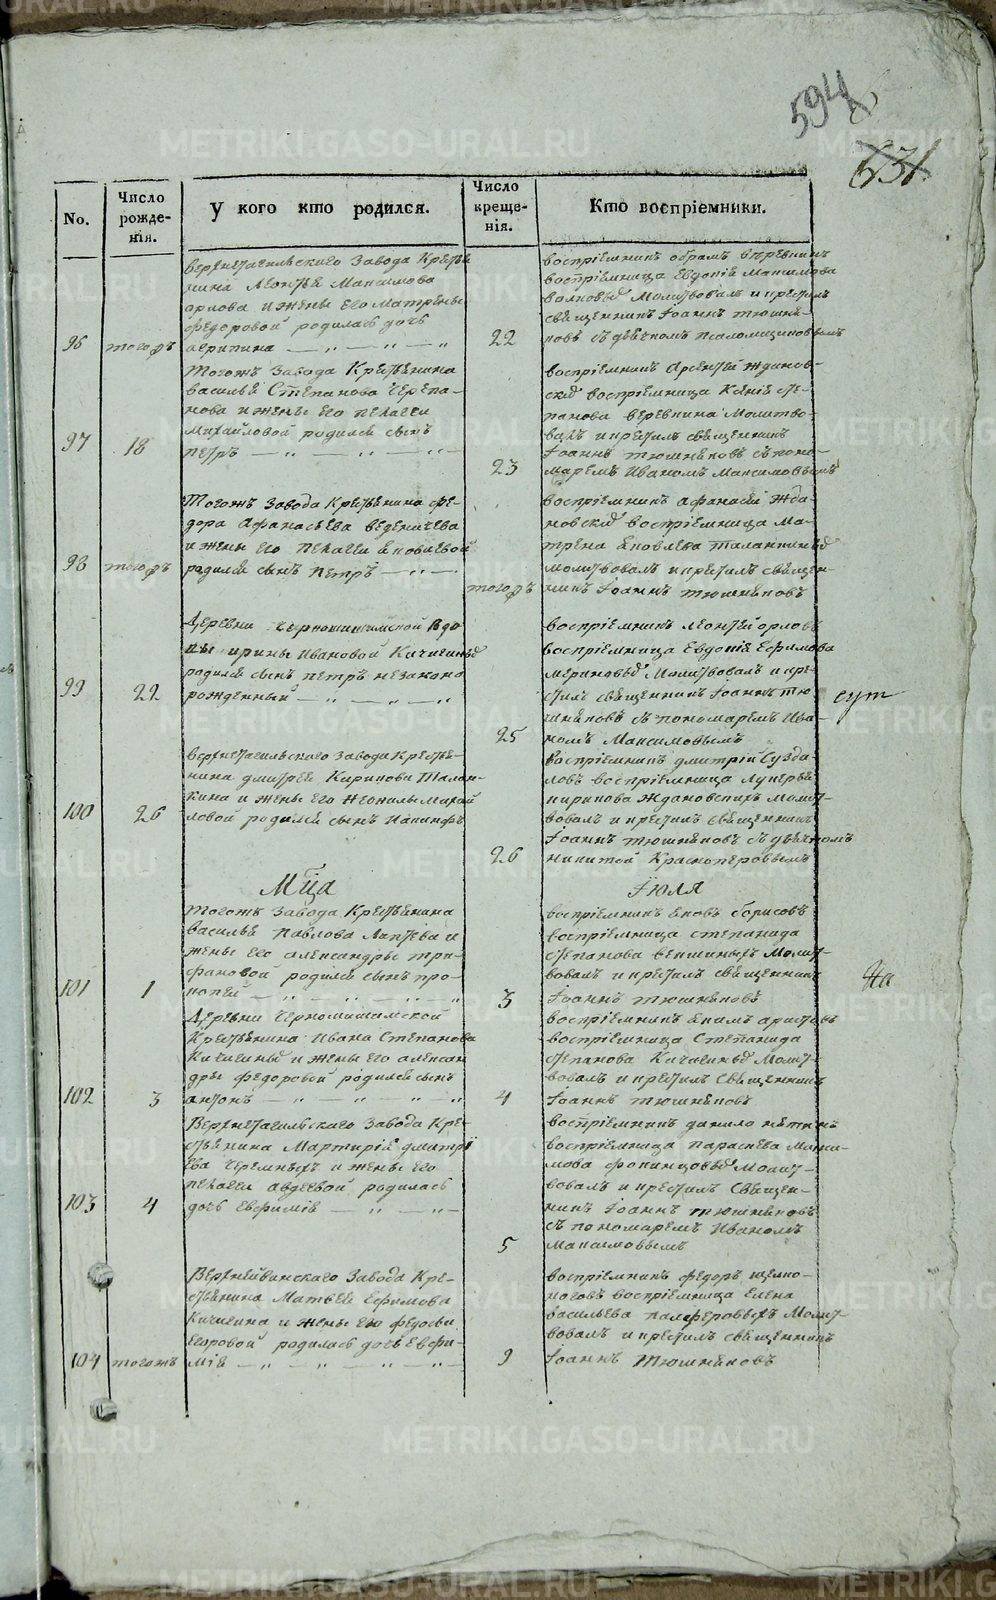 594
631
No.
Число рожде-нія.
У кого кто родился.
Число креще-нія.
Кто воспріемники.
верхнетагильскаго Завода Крестья
нина Леонтья Максимова
орлова и жены его Матрены
федоровой родилась дочь
96 тогожъ агрипина
22
воспріемникъ
воспріемница Евдокія Максимова
Молитвовалъ и крестилъ
священникъ Іоаннъ тюшня-
ковъ съ дьячкомъ
тогожъ Завода Крестьянина
василья Степанова Черепа-
нова и жены его пелагеи
Михайловой родился сынъ
97 18 петръ
23
воспріемникъ Арсентей Жданов-
ской воспріемница Ксенія сте-
панова веревкина Молитво-
валъ и крестилъ священникъ
Іоаннъ тюшняковъ съ поно-
маремъ Иваномъ Максимовымъ
тогожъ Завода Крестьянина фе-
дора Афанасьева веденичева
и жены его пелагеи яковлевой
98 тогожъ родился сынъ петръ
тогожъ
воспріемникъ афанасей Жда-
новской воспріемница Ма-
трена яковлева
молитвовалъ и крестилъ священ-
никъ Іоаннъ тюшняковъ
Деревни Черношишимской вдо
вы ирины Ивановой Кичигиной
родился сынъ петръ незаконо
99 22 рожденный
25
воспріемникъ Леонтей орловъ
воспріемница Евдокія Ефимова
Молитвовалъ и кре-
стилъ священникъ Іоаннъ тю
шняковъ съ пономаремъ Ива-
номъ Максимовымъ
верхнетагильскаго Завода Крестья-
нина дмитрея Кирилова Талан-
кина и жены его неонилы Михай
100 26 ловой родился сынъ Иакинфъ
26
воспріемникъ дмитрій Сузда-
ловъ воспріемница Лукерья
кирилова Ждановскихъ Молит-
вовалъ и крестилъ священникъ
Іоаннъ тюшняковъ съ дьячкомъ
никитой Красноперовымъ
Мца Іюля
тогожъ Завода Крестьянина
василья павлова Лаптева и
жены его александры три-
фановой родился сынъ про-
101 1 копей
3
воспріемникъ яковъ борисовъ
воспріемница степанида
степанова векшиныхъ Молит-
вовалъ и крестилъ священникъ
Іоаннъ тюшняковъ
Деревни Черношишимской
Крестьянина Ивана Степанова
Кичигина и жены его алексан
дры федоровой родился сынъ
102 3 антонъ
4
воспріемникъ якимъ аристовъ
воспріемница Степанида
степанова Кичигина Молит-
вовалъ и крестилъ Священникъ
Іоаннъ тюшняковъ
Верхнетагильскаго Завода Кре-
стьянина Мартирія дмитрі
ева Черемныхъ и жены его
пелагеи авдеевой родилась
103 4 дочь Евфимія
5
воспріемникъ данило никитинъ
воспріемница параскева Макси-
мова Молит-
вовалъ и крестилъ Священ-
никъ Іоаннъ тюшняковъ
съ пономаремъ Иваномъ
Максимовымъ
Верхнейвинскаго Завода Кре-
стьянина Матвея Ефимова
Кичигина и жены его федосьи
Егоровой родилась дочь Евфи-
104 тогожъ мія
9
воспріемникъ федоръ щелко-
ноговъ воспріемница Елена
васильева палферовыхъ Молит-
вовалъ и крестилъ священникъ
Іоаннъ Тюшняковъ
METRIKI.GASO-URAL.RU